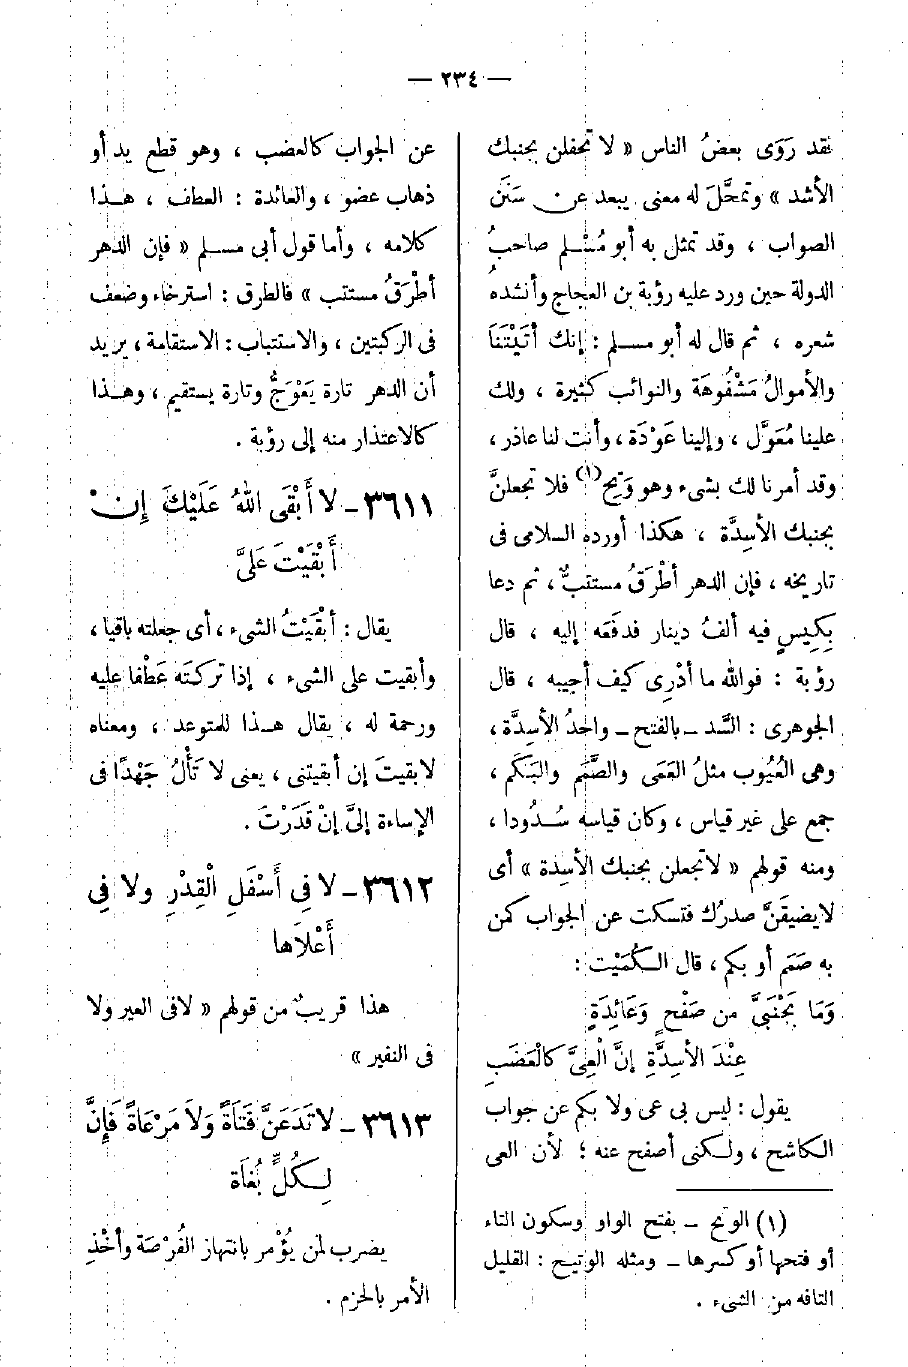 — ٢٣٤ —
فقد رَوَى بعضُ الناس « لا تحفلن بجنبك
الأشد » وتمحَّلَ له معنى يبعد عن سَنَن
الصواب ، وقد تمثل به أبو مُسْلم صاحبُ
الدولة حين ورد عليه رؤبة بن العجاج وأنشده
شعره ، ثم قال له أبو مسلم : إنك أتَيْتَنَا
والأموالُ مَشْفُوهَة والنوائب كثيرة ، ولك
علينا مُعَوَّل ، وإلينا عَوْدَة ، وأنت لنا عاذر ،
وقد أمرنا لك بشىء وهو وَتِح(١) فلا تجعلنَّ
بجنبك الأسِدَّة ، هكذا أورده السلامى فى
تاريخه ، فإن الدهر أطْرَقُ مستتبٌّ ، ثم دعا
بِكِيسٍ فيه ألفُ دينار فدفَعَه إليه ، قال
رؤبة : فوالله ما أدْرِى كيف أجيبه ، قال
الجوهرى : السَّد – بالفتح – واحدُ الأسِدَّة ،
وهى العُيُوب مثلُ العَمَى والصَّمَم والبَكَم ،
جمع على غير قياس ، وكان قياسه سُدُودا ،
ومنه قولهم « لا تجعلن بجنبك الأسِدة » أى
لا يضيقَنَّ صدرُك فتسكت عن الجواب كمن
به صَمَم أو بكم ، قال الكُمَيْت :
وَمَا بِجَنْبَىَّ من صَفْحٍ وَعَائِدَةٍ
عِنْدَ الأسِدَّةِ إنَّ الْعِىَّ كالْعَضَبِ
يقول : ليس بى عى ولا بكم عن جواب
الكاشح ، ولكنى أصفح عنه ؛ لأن العى
(١) الوتح – بفتح الواو وسكون التاء
أو فتحها أو كسرها – ومثله الوتيح : القليل
التافه من الشىء .
عن الجواب كالعضب ، وهو قطع يد أو
ذهاب عضو ، والعائدة : العطف ، هذا
كلامه ، وأما قول أبى مسلم « فإن الدهر
أطْرَقُ مستتب » فالطرق : استرخاء وضعف
فى الركبتين ، والاستتباب : الاستقامة ، يريد
أن الدهر تارة يَعْوَجُّ وتارة يستقيم ، وهذا
كالاعتذار منه إلى رؤبة .
٣٦١١ – لا أَبْقَى اللهُ عَلَيْكَ إنْ
أَبْقَيْتَ عَلَىَّ
يقال : أبقَيْتُ الشىء ، أى جعلته باقيا ،
وأبقيت على الشىء ، إذا تركتَه عَطْفا عليه
ورحمة له ، يقال هذا للمتوعد ، ومعناه
لا بقيتَ إن أبقيتنى ، يعنى لا تَأْلُ جَهْدًا فى
الإساءة إلىَّ إنْ قَدَرْتَ .
٣٦١٢ – لا فِى أَسْفَلِ الْقِدْرِ ولا فِى
أَعْلاَها
هذا قريبٌ من قولهم « لا فى العير ولا
فى النفير »
٣٦١٣ – لا تَدَعَنَّ فَتَاةً وَلاَ مَرْعَاةً فَإِنَّ
لِكُلٍّ بُغَاةَ
يضرب لمن يُؤْمر بانتهاز الفُرْصَة وأخْذِ
الأمر بالحزم .